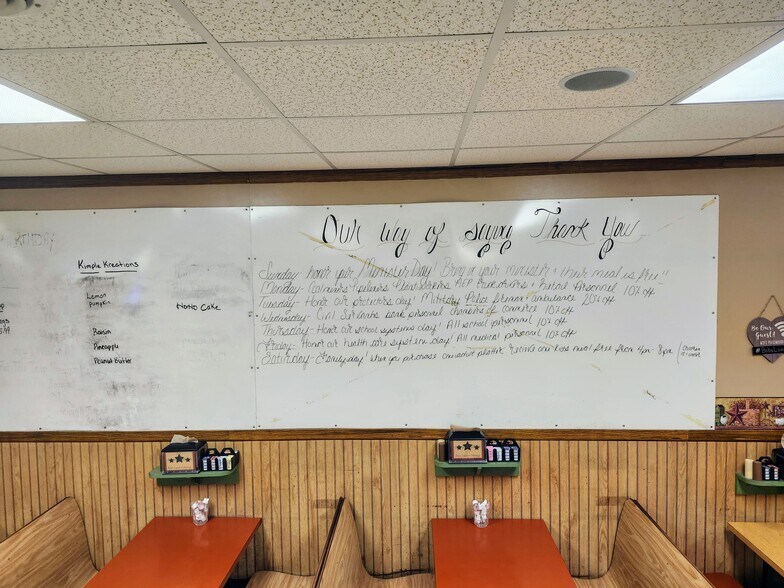 Our way of saying Thank You
Kimple Kreations
Sunday- honor your Minister Day! Bring in your minister & their meal is free!!
Monday- Coalminers AEP Retail Personnel 10% off
Tuesday- Honor our protectors day! Military Police firemen ambulance 20% off
Wednesday- Civil Servants bank personnel chambers of commerce 10% off
Thursday- Honor our school systems day! All school personnel 10% off
Friday- Honor our health care system day! All medical personnel 10% off
Saturday- Family day! When you purchase one adult platter receive one kids meal free from 4pm- 8pm
Lemon
Pumpkin
HoHo Cake
Raisin
Pineapple
Peanut Butter
Be Our
Guest!